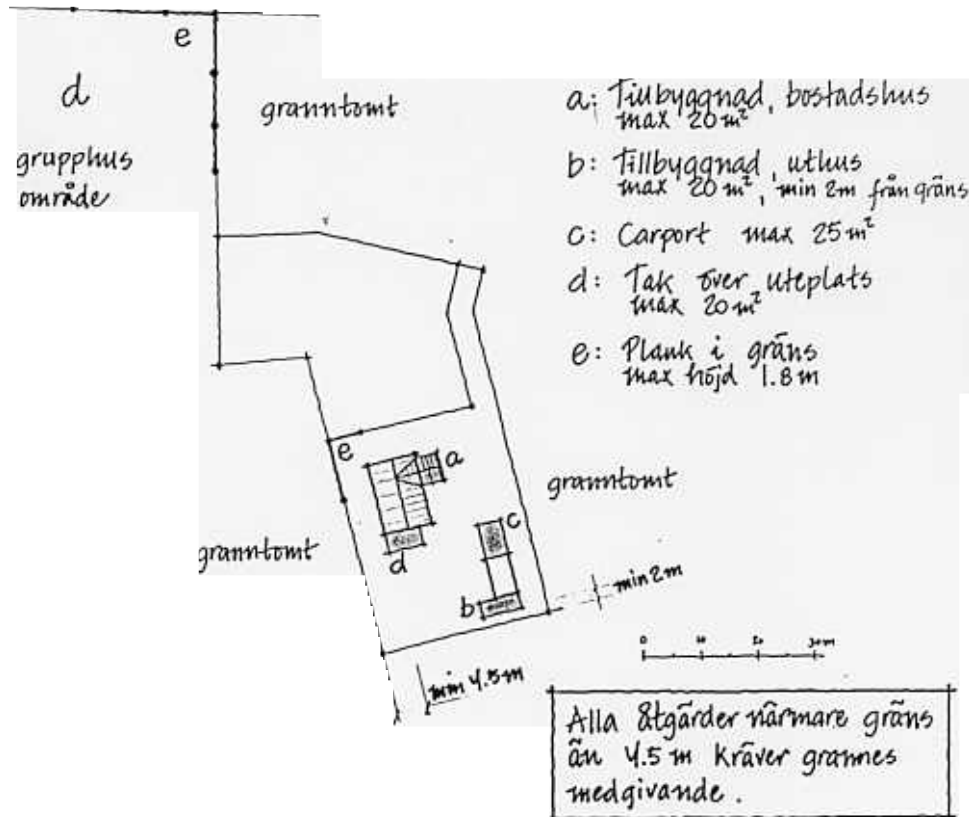 e
d
grupphus
område
granntomt
a: Tillbyggnad, bostadshus
max 20 m²
b: Tillbyggnad, uthus
max 20 m², min 2m från gräns
c: Carport max 25 m²
d: Tak över uteplats
max 20 m²
e: Plank i gräns
max höjd 1.8 m
e
a
granntomt
c
granntomt
d
b
min 2m
min 4.5 m
0 10 20 30m
Alla åtgärder närmare gräns
än 4.5 m kräver grannes
medgivande.